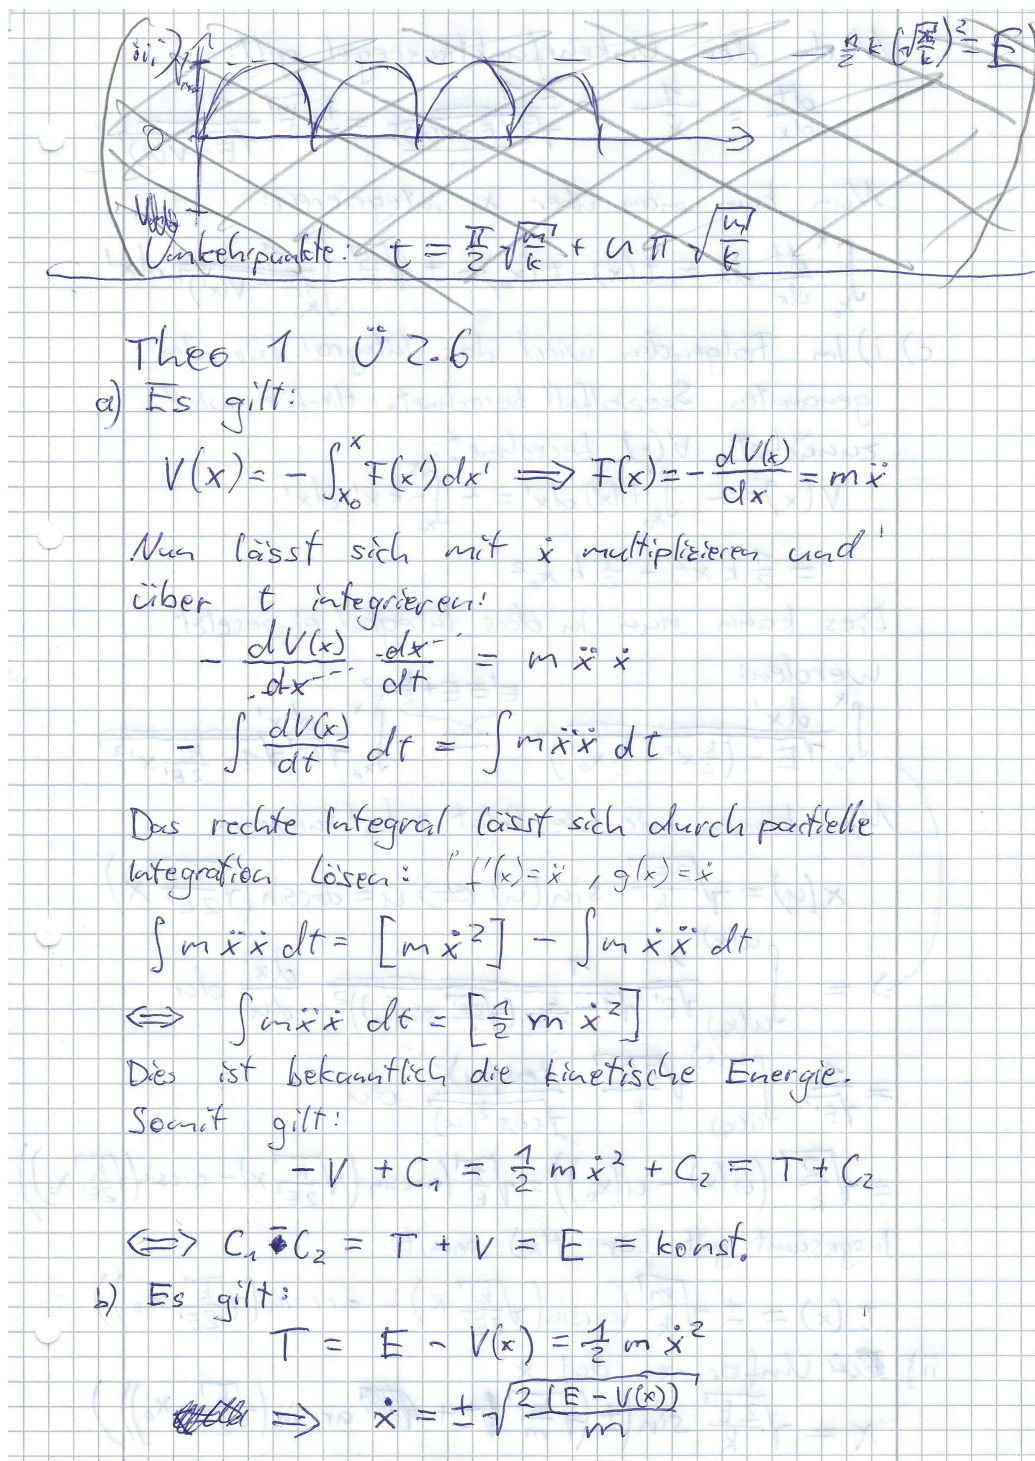 iii) V
n/2 k (√(2E/k))² = E
0
Umkehrpunkte: t = π/2 √(m/k) + n π √(m/k)
Theo 1 Ü 2.6
a) Es gilt:
V(x) = - ∫_{x₀}^{x} F(x') dx' ⟹ F(x) = - dV(x)/dx = m ẍ
Nun lässt sich mit ẋ multiplizieren und
über t integrieren:
- dV(x)/dx dx/dt = m ẍ ẋ
- ∫ dV(x)/dt dt = ∫ m ẍ ẍ dt
Das rechte Integral lässt sich durch partielle
Integration lösen: "f'(x) = ẍ , g(x) = ẋ
∫ m ẍ ẋ dt = [m ẋ²] - ∫ m ẋ ẍ dt
⟺ ∫ m ẍ ẋ dt = [1/2 m ẋ²]
Dies ist bekanntlich die kinetische Energie.
Somit gilt:
- V + C₁ = 1/2 m ẋ² + C₂ = T + C₂
⟺ C₁ - C₂ = T + V = E = konst.
b) Es gilt:
T = E - V(x) = 1/2 m ẋ²
⟹ ẋ = ± √(2(E - V(x))/m)